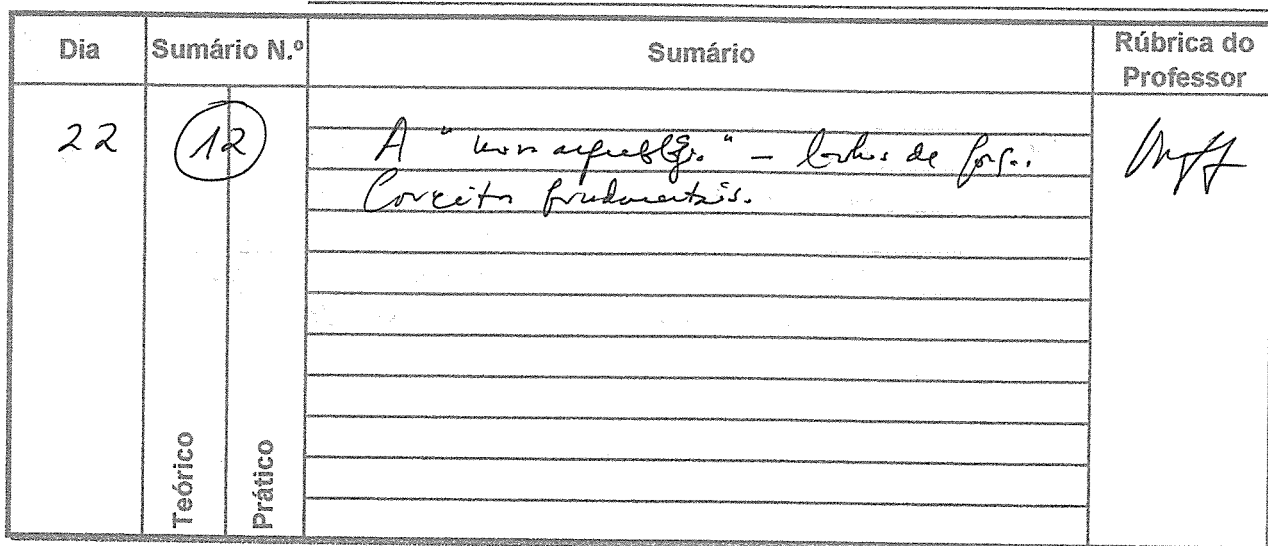 Dia Sumário N.º Sumário Rúbrica do Professor
22 12 A "nova arqueologia" – linhas de força.
Conceitos fundamentais.
Teórico Prático